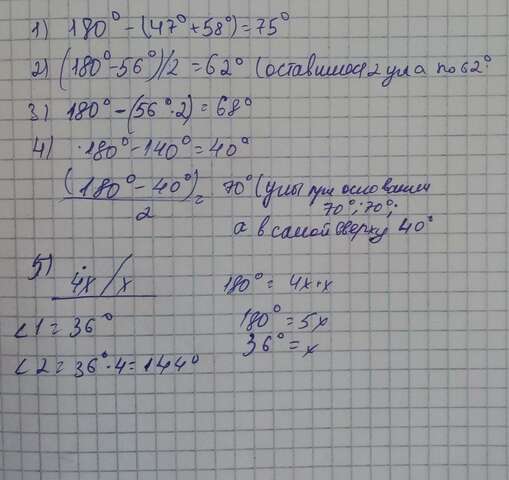 1) 180° - (47° + 58°) = 75°
2) (180° - 56°)/2 = 62° (оставшиеся 2 угла по 62°
3) 180° - (56° · 2) = 68°
4) 180° - 140° = 40°
(180° - 40°)/2 = 70° (углы при основании
70°; 70°;
а в самом сверху 40°
5) 4x / x
180° = 4x + x
∠1 = 36°
180° = 5x
36° = x
∠2 = 36° · 4 = 144°